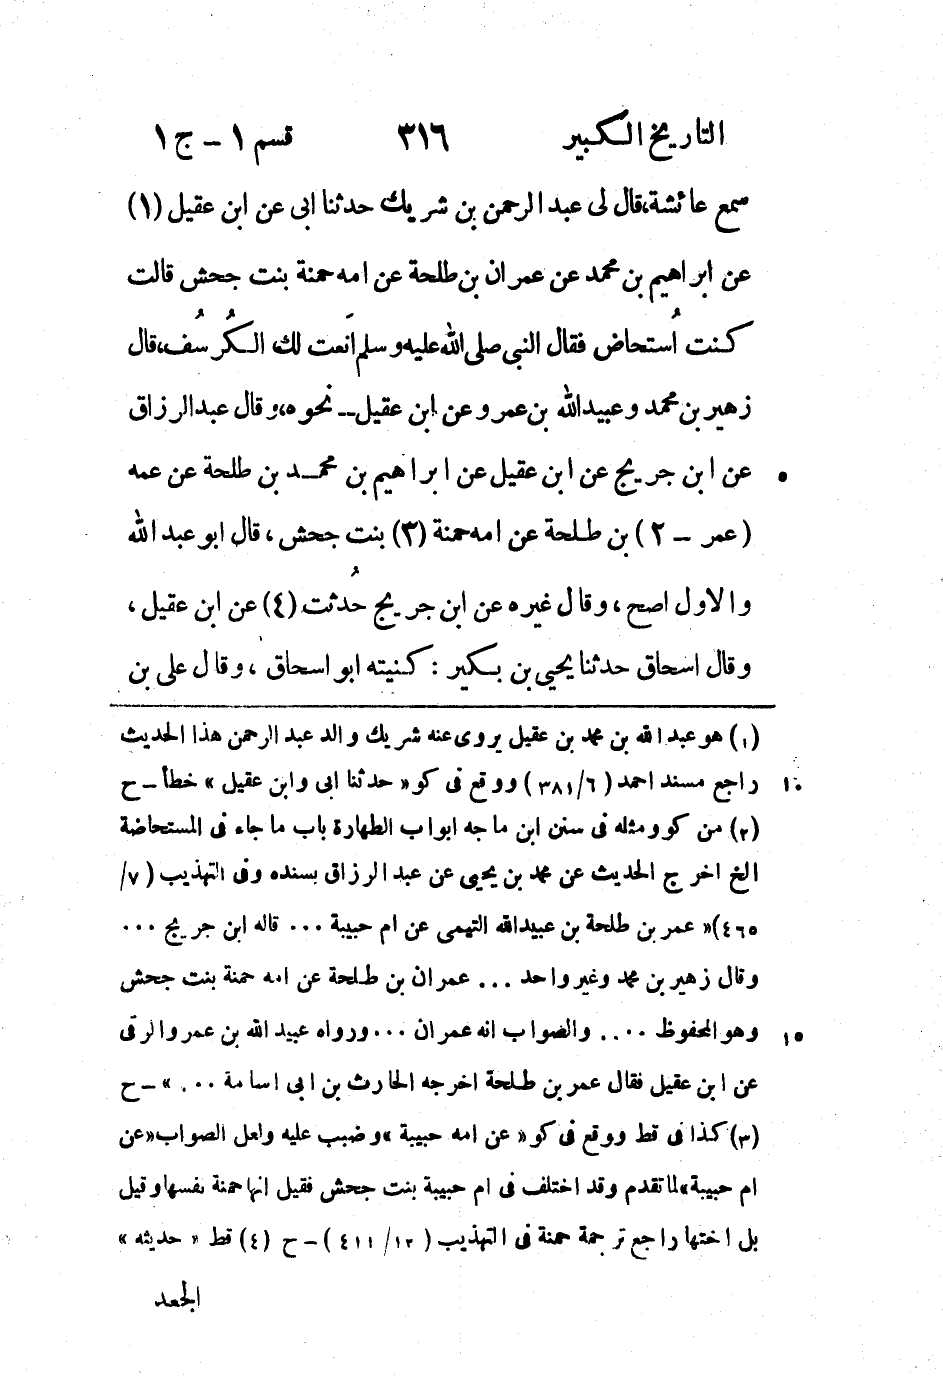 التاريخ الكبير ٣١٦ قسم ١ - ج ١
سمع عائشة، قال لى عبد الرحمن بن شريك حدثنا ابى عن ابن عقيل (١)
عن ابراهيم بن محمد عن عمران بن طلحة عن امه حمنة بنت جحش قالت
كنت اُستحاض فقال النبى صلى الله عليه وسلم اَنعت لك الكُرسُف، قال
زهير بن محمد وعبيد الله بن عمرو عن ابن عقيل - نحوه، وقال عبد الرزاق
عن ابن جريج عن ابن عقيل عن ابراهيم بن محمد بن طلحة عن عمه ٥
(عمر - ٢) بن طلحة عن امه حمنة (٣) بنت جحش، قال ابو عبد الله
والاول اصح، وقال غيره عن ابن جريج حُدثت (٤) عن ابن عقيل،
وقال اسحاق حدثنا يحيى بن بكير : كنيته ابو اسحاق، وقال على بن
(١) هو عبد الله بن محمد بن عقيل يروى عنه شريك والد عبد الرحمن هذا الحديث
راجع مسند احمد (٦/ ٣٨١) ووقع فى كو «حدثنا ابى وابن عقيل» خطأ - ح ١٠
(٢) من كو ومثله فى سنن ابن ماجه ابواب الطهارة باب ما جاء فى المستحاضة
الخ اخرج الحديث عن محمد بن يحيى عن عبد الرزاق بسنده وفى التهذيب (٧/
٤٦٥) «عمر بن طلحة بن عبيد الله التيمى عن ام حبيبة ... قاله ابن جريج ...
وقال زهير بن محمد وغير واحد ... عمران بن طلحة عن امه حمنة بنت جحش
وهو المحفوظ .... والصواب انه عمران ... ورواه عبيد الله بن عمرو الرقى ١٥
عن ابن عقيل فقال عمر بن طلحة اخرجه الحارث بن ابى اسامة ...» - ح
(٣) كذا فى قط ووقع فى كو «عن امه حبيبة» وضبب عليه ولعل الصواب «عن
ام حبيبة» لما تقدم وقد اختلف فى ام حبيبة بنت جحش فقيل انها حمنة نفسها وقيل
بل اختها راجع ترجمة حمنة فى التهذيب (١٢/ ٤١١) - ح (٤) قط «حديثه»
الجعد